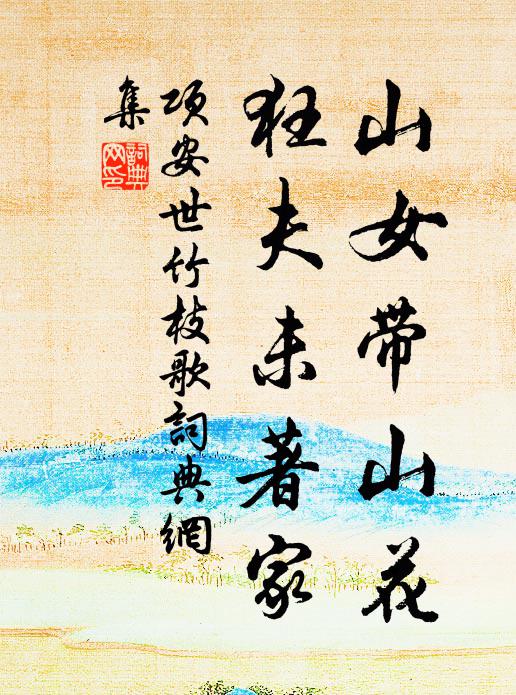 山女带山花
狂夫未著家
项安世竹枝歌詞典網
集
詞典
网印